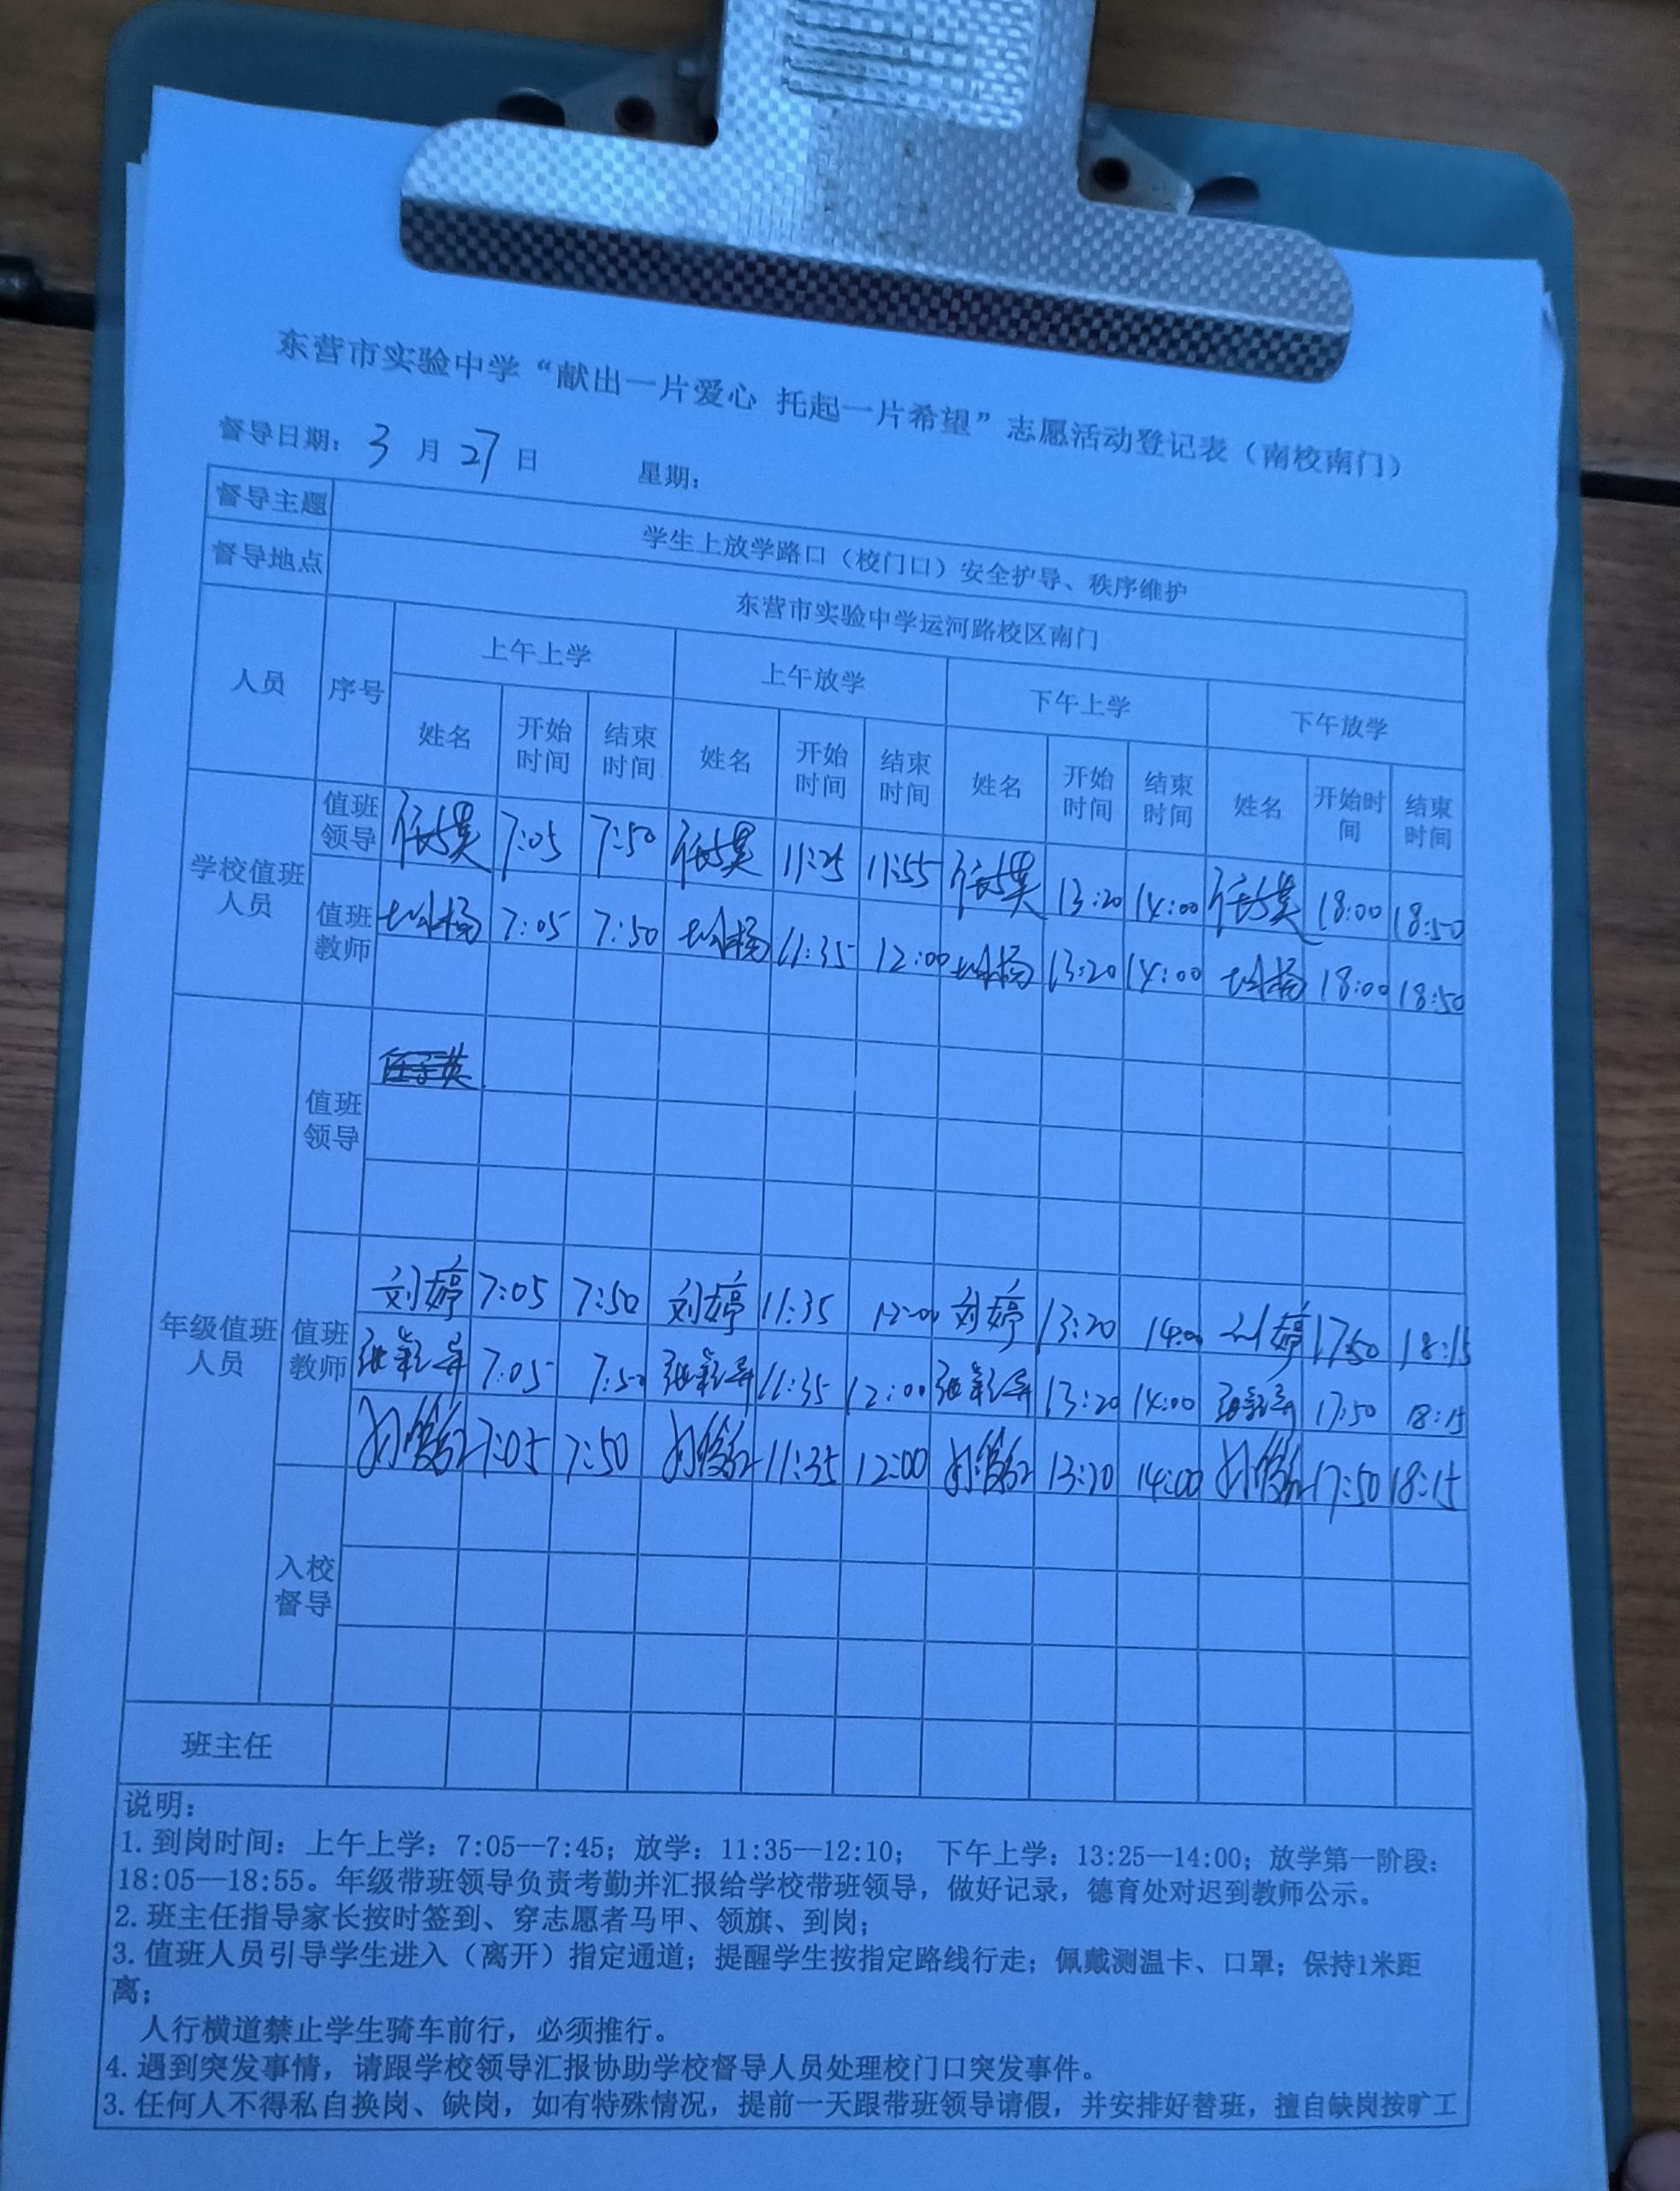 东营市实验中学“献出一片爱心 托起一片希望”志愿活动登记表（南校南门）
督导日期：3月27日 星期：
督导主题 学生上放学路口（校门口）安全护导、秩序维护
督导地点 东营市实验中学运河路校区南门
人员 序号 上午上学 上午放学 下午上学 下午放学
姓名 开始时间 结束时间 姓名 开始时间 结束时间 姓名 开始时间 结束时间 姓名 开始时间 结束时间
学校值班人员
值班领导 7:05 7:50 11:25 11:55 13:20 14:00 18:00 18:50
值班教师 7:05 7:50 11:35 12:00 13:20 14:00 18:00 18:50
年级值班人员
值班领导
值班教师
刘婷 7:05 7:50 刘婷 11:35 12:00 刘婷 13:20 14:00 刘婷 17:50 18:15
7:05 7:50 11:35 12:00 13:20 14:00 17:50 18:15
7:05 7:50 11:35 12:00 13:20 14:00 17:50 18:15
入校督导
班主任
说明：
1.到岗时间：上午上学：7:05--7:45；放学：11:35—12:10； 下午上学：13:25—14:00；放学第一阶段：
18:05—18:55。年级带班领导负责考勤并汇报给学校带班领导，做好记录，德育处对迟到教师公示。
2.班主任指导家长按时签到、穿志愿者马甲、领旗、到岗；
3.值班人员引导学生进入（离开）指定通道；提醒学生按指定路线行走；佩戴测温卡、口罩；保持1米距
离；
人行横道禁止学生骑车前行，必须推行。
4.遇到突发事情，请跟学校领导汇报协助学校督导人员处理校门口突发事件。
3.任何人不得私自换岗、缺岗，如有特殊情况，提前一天跟带班领导请假，并安排好替班，擅自缺岗按旷工